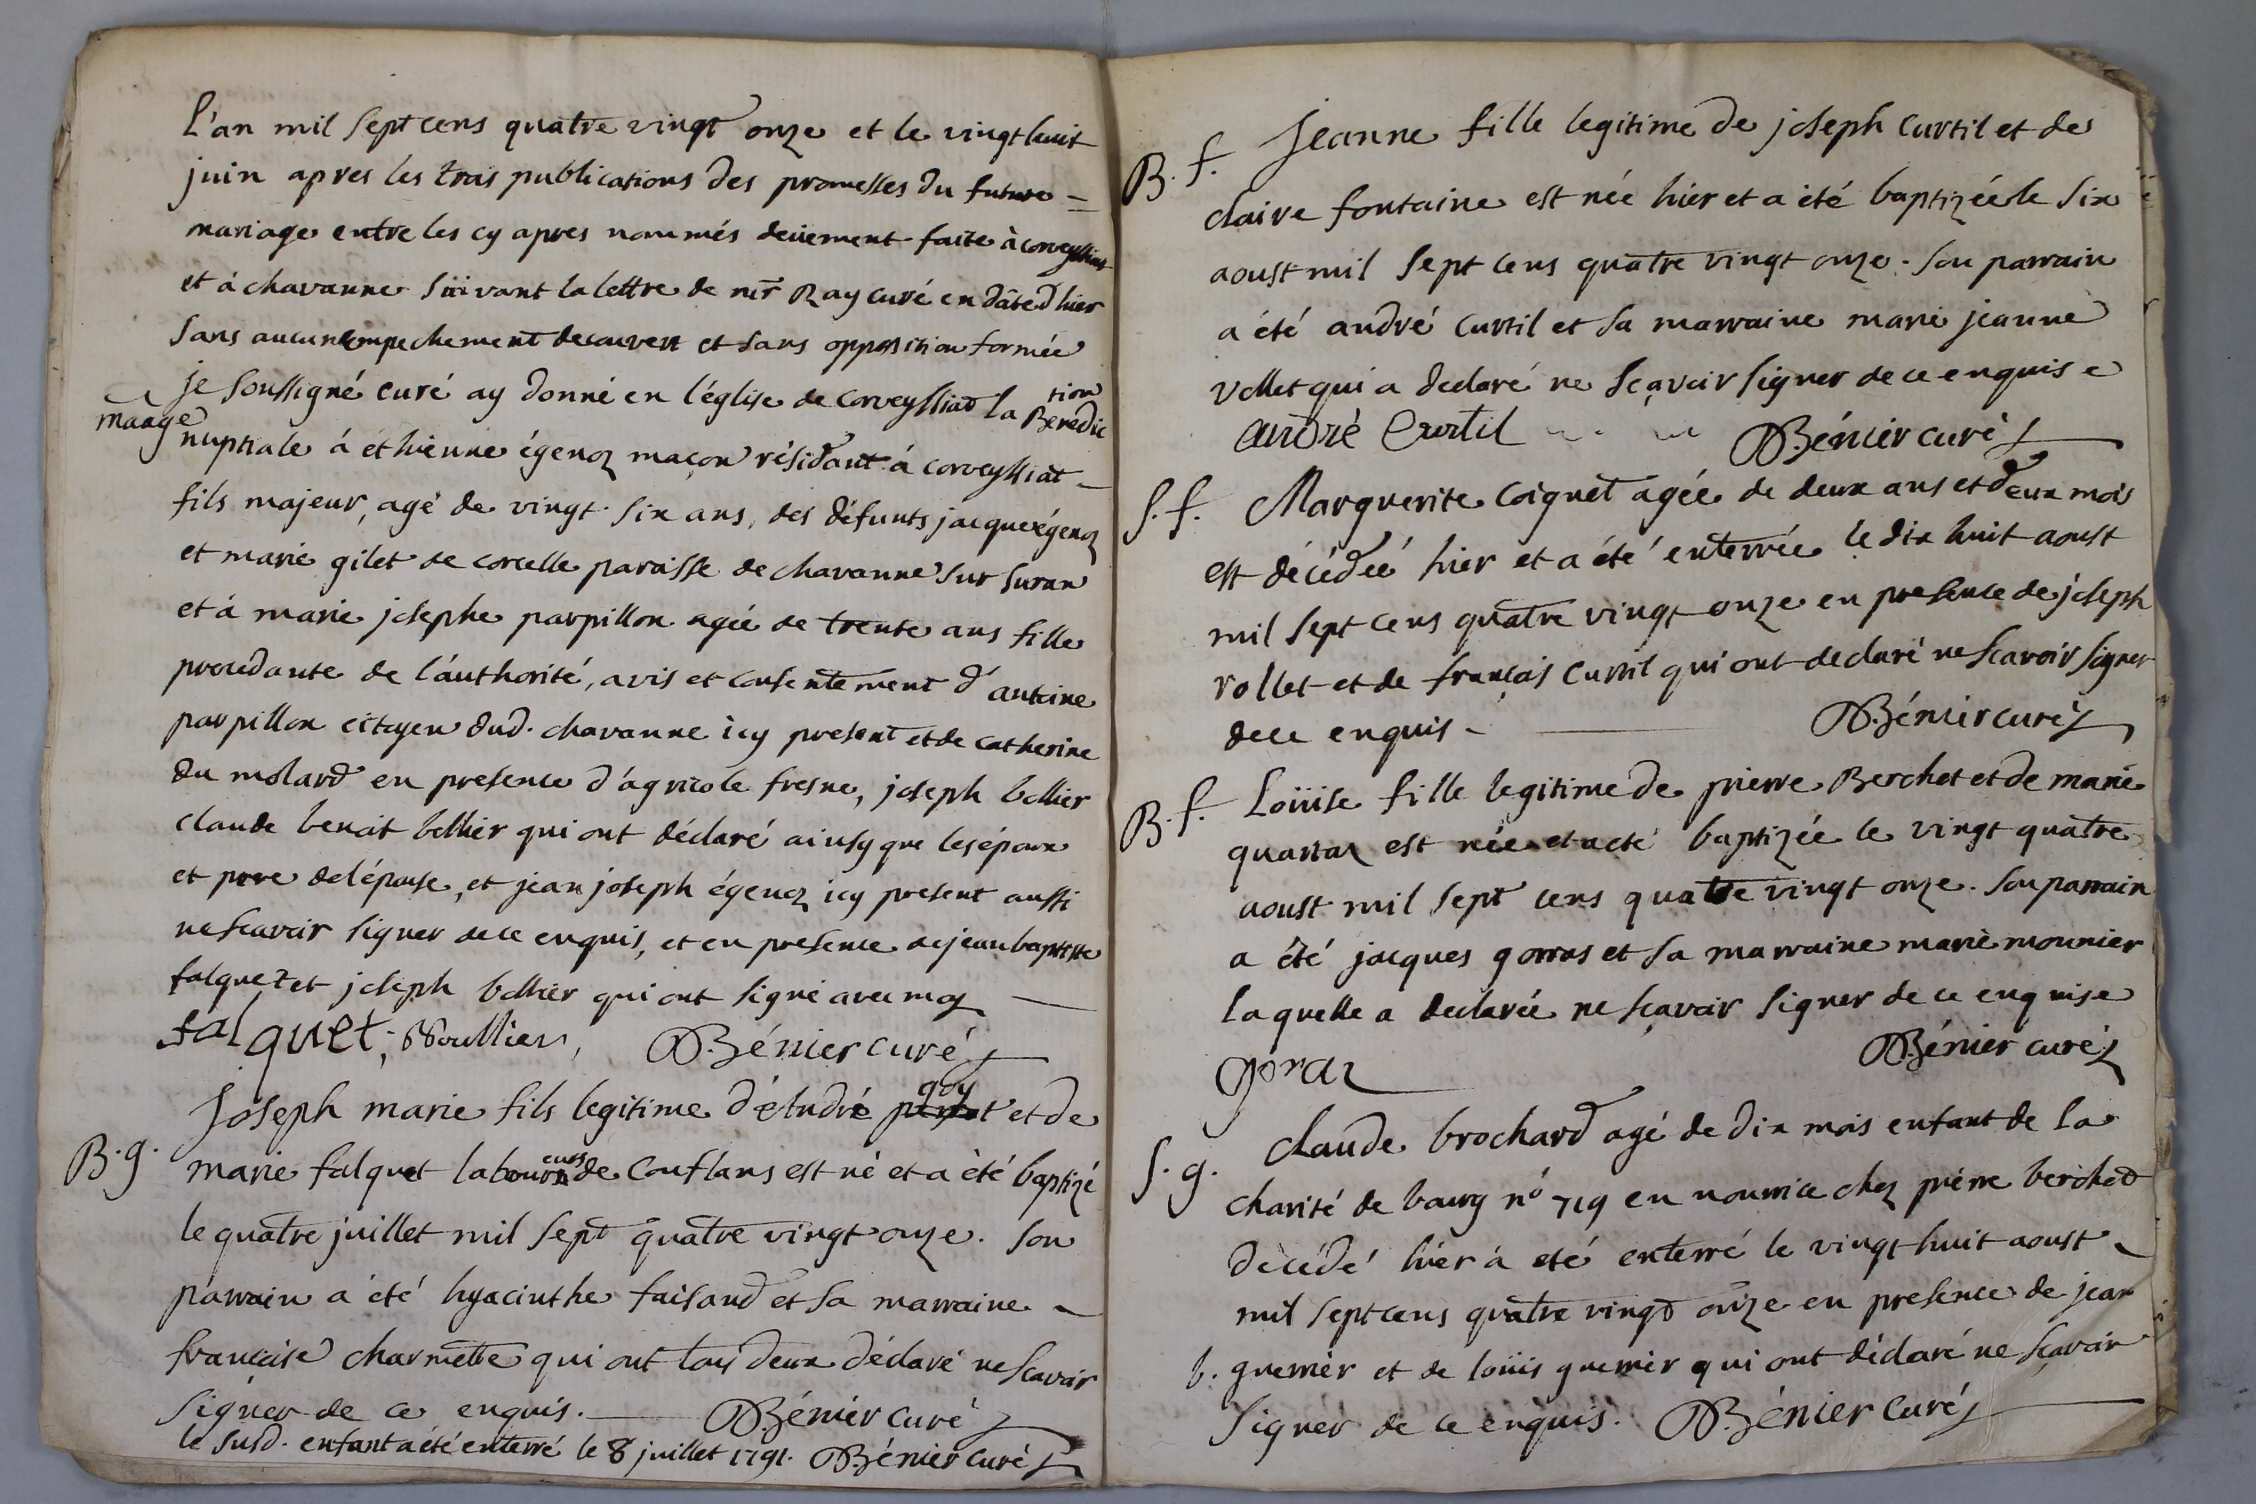 L'an mil sept cens quatre vingt onze et le vingt huit
juin apres les trois publications des promesses du future =
mariage entre les cy apres nommés deüement faite à corveyssiat
et à chavanne süivant la lettre de mr Ray curé en dâte d'hier
sans aucun empechement decouvert et sans opposition formée
je soussigné curé ay donné en l'église de corveyssiat la Benedic
tion
maage
nuptiale á ethienne égenoz maçon résidant á corveyssiat -
fils majeur, agé de vingt six ans, des défunts jacque égenoz
et marie gilet de corcelle paroisse de chavanne sur suran
et á marie josephe parpillon agée de trente ans fille
procedante de l'áuthorité, avis et consentement d'antoine
parpillon citoyen dud. chavanne icy present et de catherine
du molard en presence d'agricole fresne, joseph bollier
claude benoit bollier qui ont déclaré ainsy que les époux
et pere de l'épouse, et jean joseph égenoz icy present aussi
ne scavoir signer de ce enquis, et en presence de jean baptiste
falquet et joseph bollier qui ont signé avec moy
falquet; Boullier, Bénier curé
Joseph marie fils legitime d'éludré goy et de
B. g.
marie falquet laboureurs de Conflans est né et a été baptizé
le quatre juillet mil sept quatre vingt onze. son
parrain a été hyacinthe faisand et sa marraine -
francoise charmette qui ont tous deux déclaré ne scavoir
signer de ce enquis. Bénier curé
le susd. enfant a été enterré le 8 juillet 1791. Bénier curé
Jeanne fille legitime de joseph Curtil et de
B. f.
claire fontaine est née hier et a été baptizée le six
aoust mil sept cens quatre vingt onze. son parrain
a été andré Curtil et sa marraine marie jeanne
vollet qui a declaré ne sçavoir signer de ce enquise
andré Curtil Bénier curé
S. f. Marguerite Coignet agée de deux ans et deux mois
est décédée hier et a été enterrée le dix huit aoust
mil sept cens quatre vingt onze en presence de joseph
rollet et de françois Curtil qui ont declaré ne scavoir signer
de ce enquis - Bénier curé
B. f. Loüise fille legitime de pierre Berchet et de marie
est née et a eté baptizée le vingt quatre
aoust mil sept cens quatre vingt onze. son parrain
a été jacques gorras et sa marraine marie mounier
laquelle a declarée ne sçavoir signer de ce enquise
Bénier curé
goraz
S. g. claude brochard agé de dix mois enfant de la
charité de bourg n° 719 en nourrice chez pierre berchod
décédé hier à eté enterré le vingt huit aoust -
mil sept cens quatre vingt onze en presence de jean
b. guerrier et de loüis guerrier qui ont déclaré ne scavoir
signer de ce enquis. Bénier curé